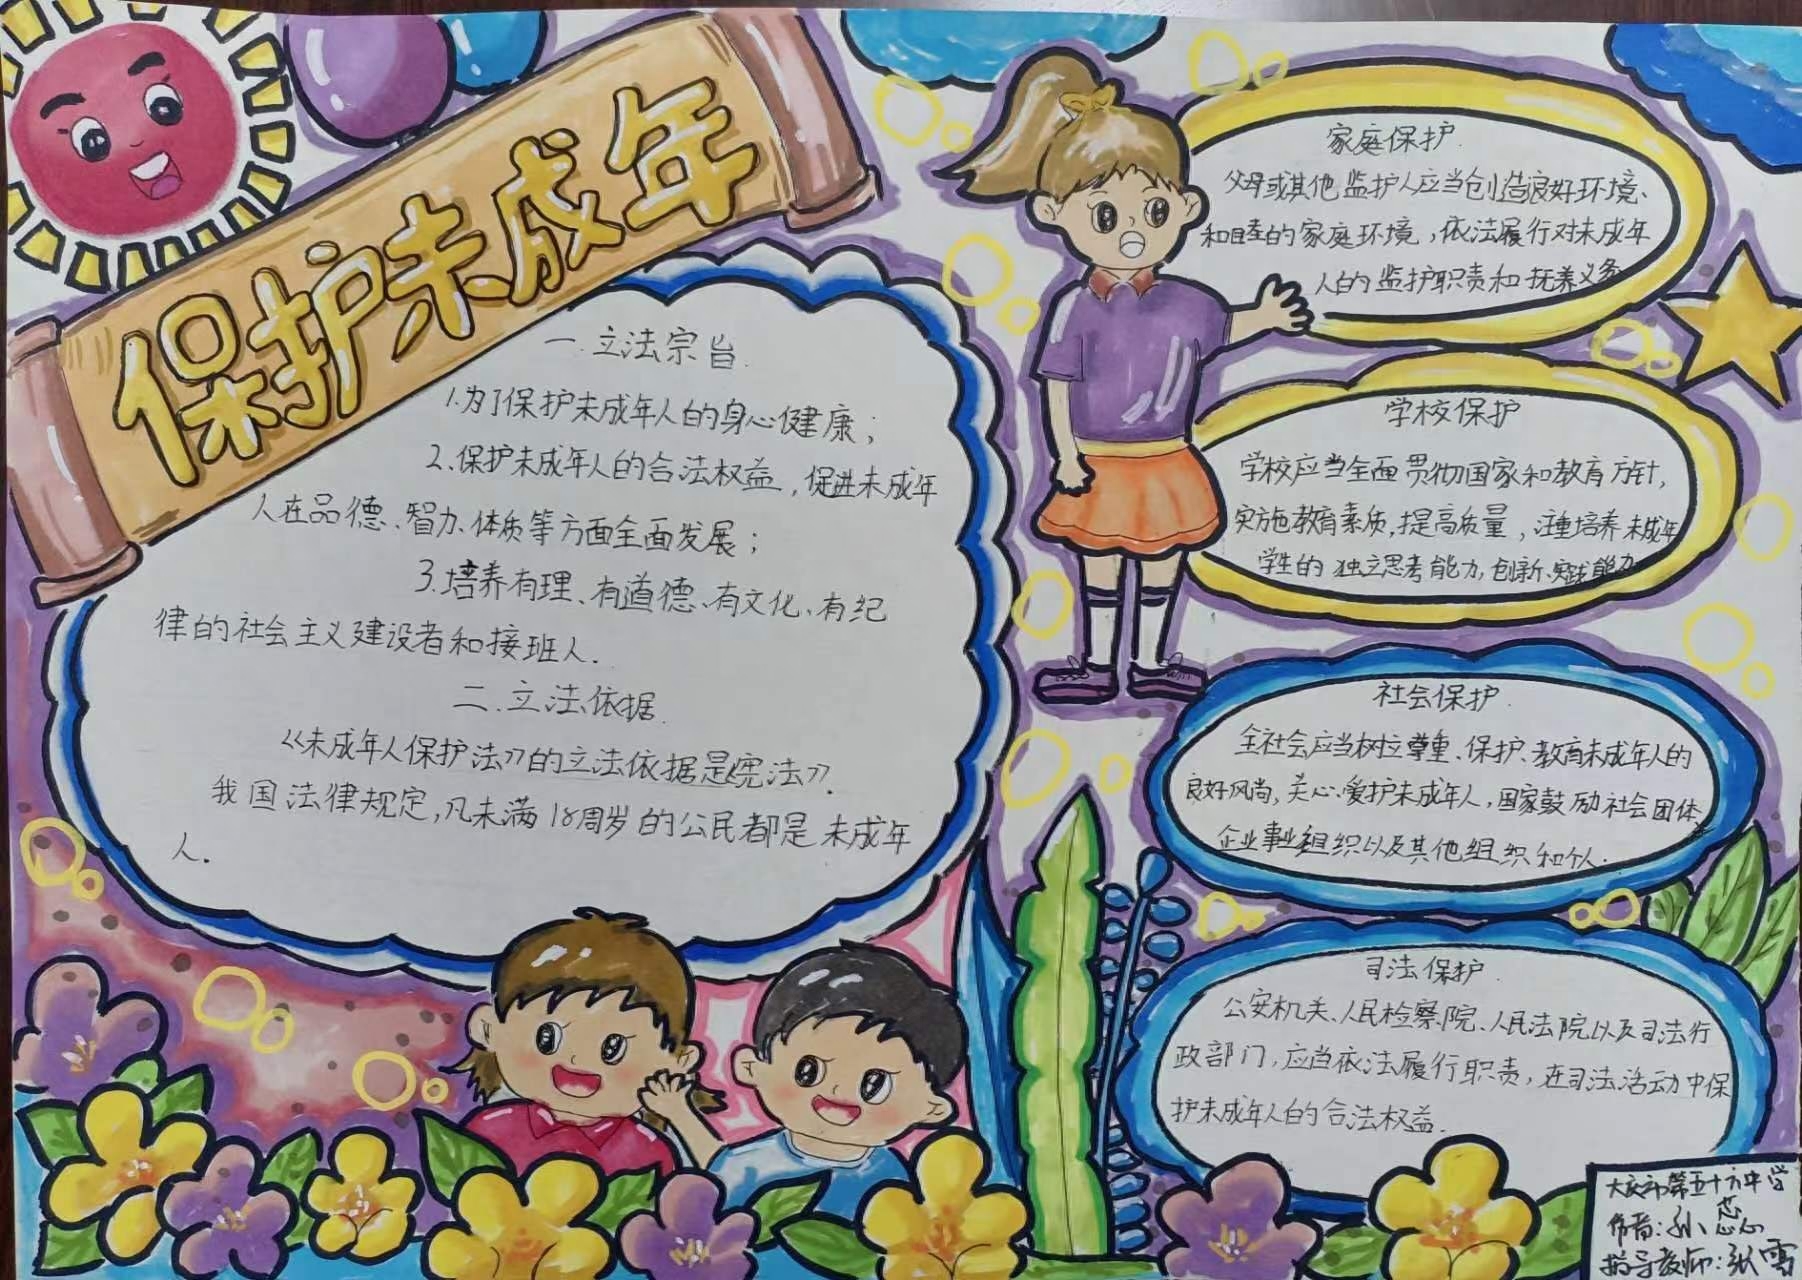 保护未成年
一.立法宗旨.
1.为了保护未成年人的身心健康；
2、保护未成年人的合法权益，促进未成年
人在品德、智力、体质等方面全面发展；
3.培养有理、有道德、有文化、有纪
律的社会主义建设者和接班人.
二.立法依据.
《未成年人保护法》的立法依据是《宪法》.
我国法律规定，凡未满18周岁的公民都是未成年
人.
家庭保护.
父母或其他监护人应当创造良好环境、
和睦的家庭环境，依法履行对未成年
人的监护职责和抚养义务
学校保护
学校应当全面贯彻国家和教育方针，
实施教育素质，提高质量，注重培养未成年
学生的独立思考能力，创新、实践能力
社会保护.
全社会应当树立尊重、保护、教育未成年人的
良好风尚，关心、爱护未成年人，国家鼓励社会团体
企业事业组织以及其他组织和个人.
司法保护.
公安机关、人民检察院、人民法院以及司法行
政部门，应当依法履行职责，在司法活动中保
护未成年人的合法权益.
大庆市第五十六中学
作者：孙
指导教师：张雪